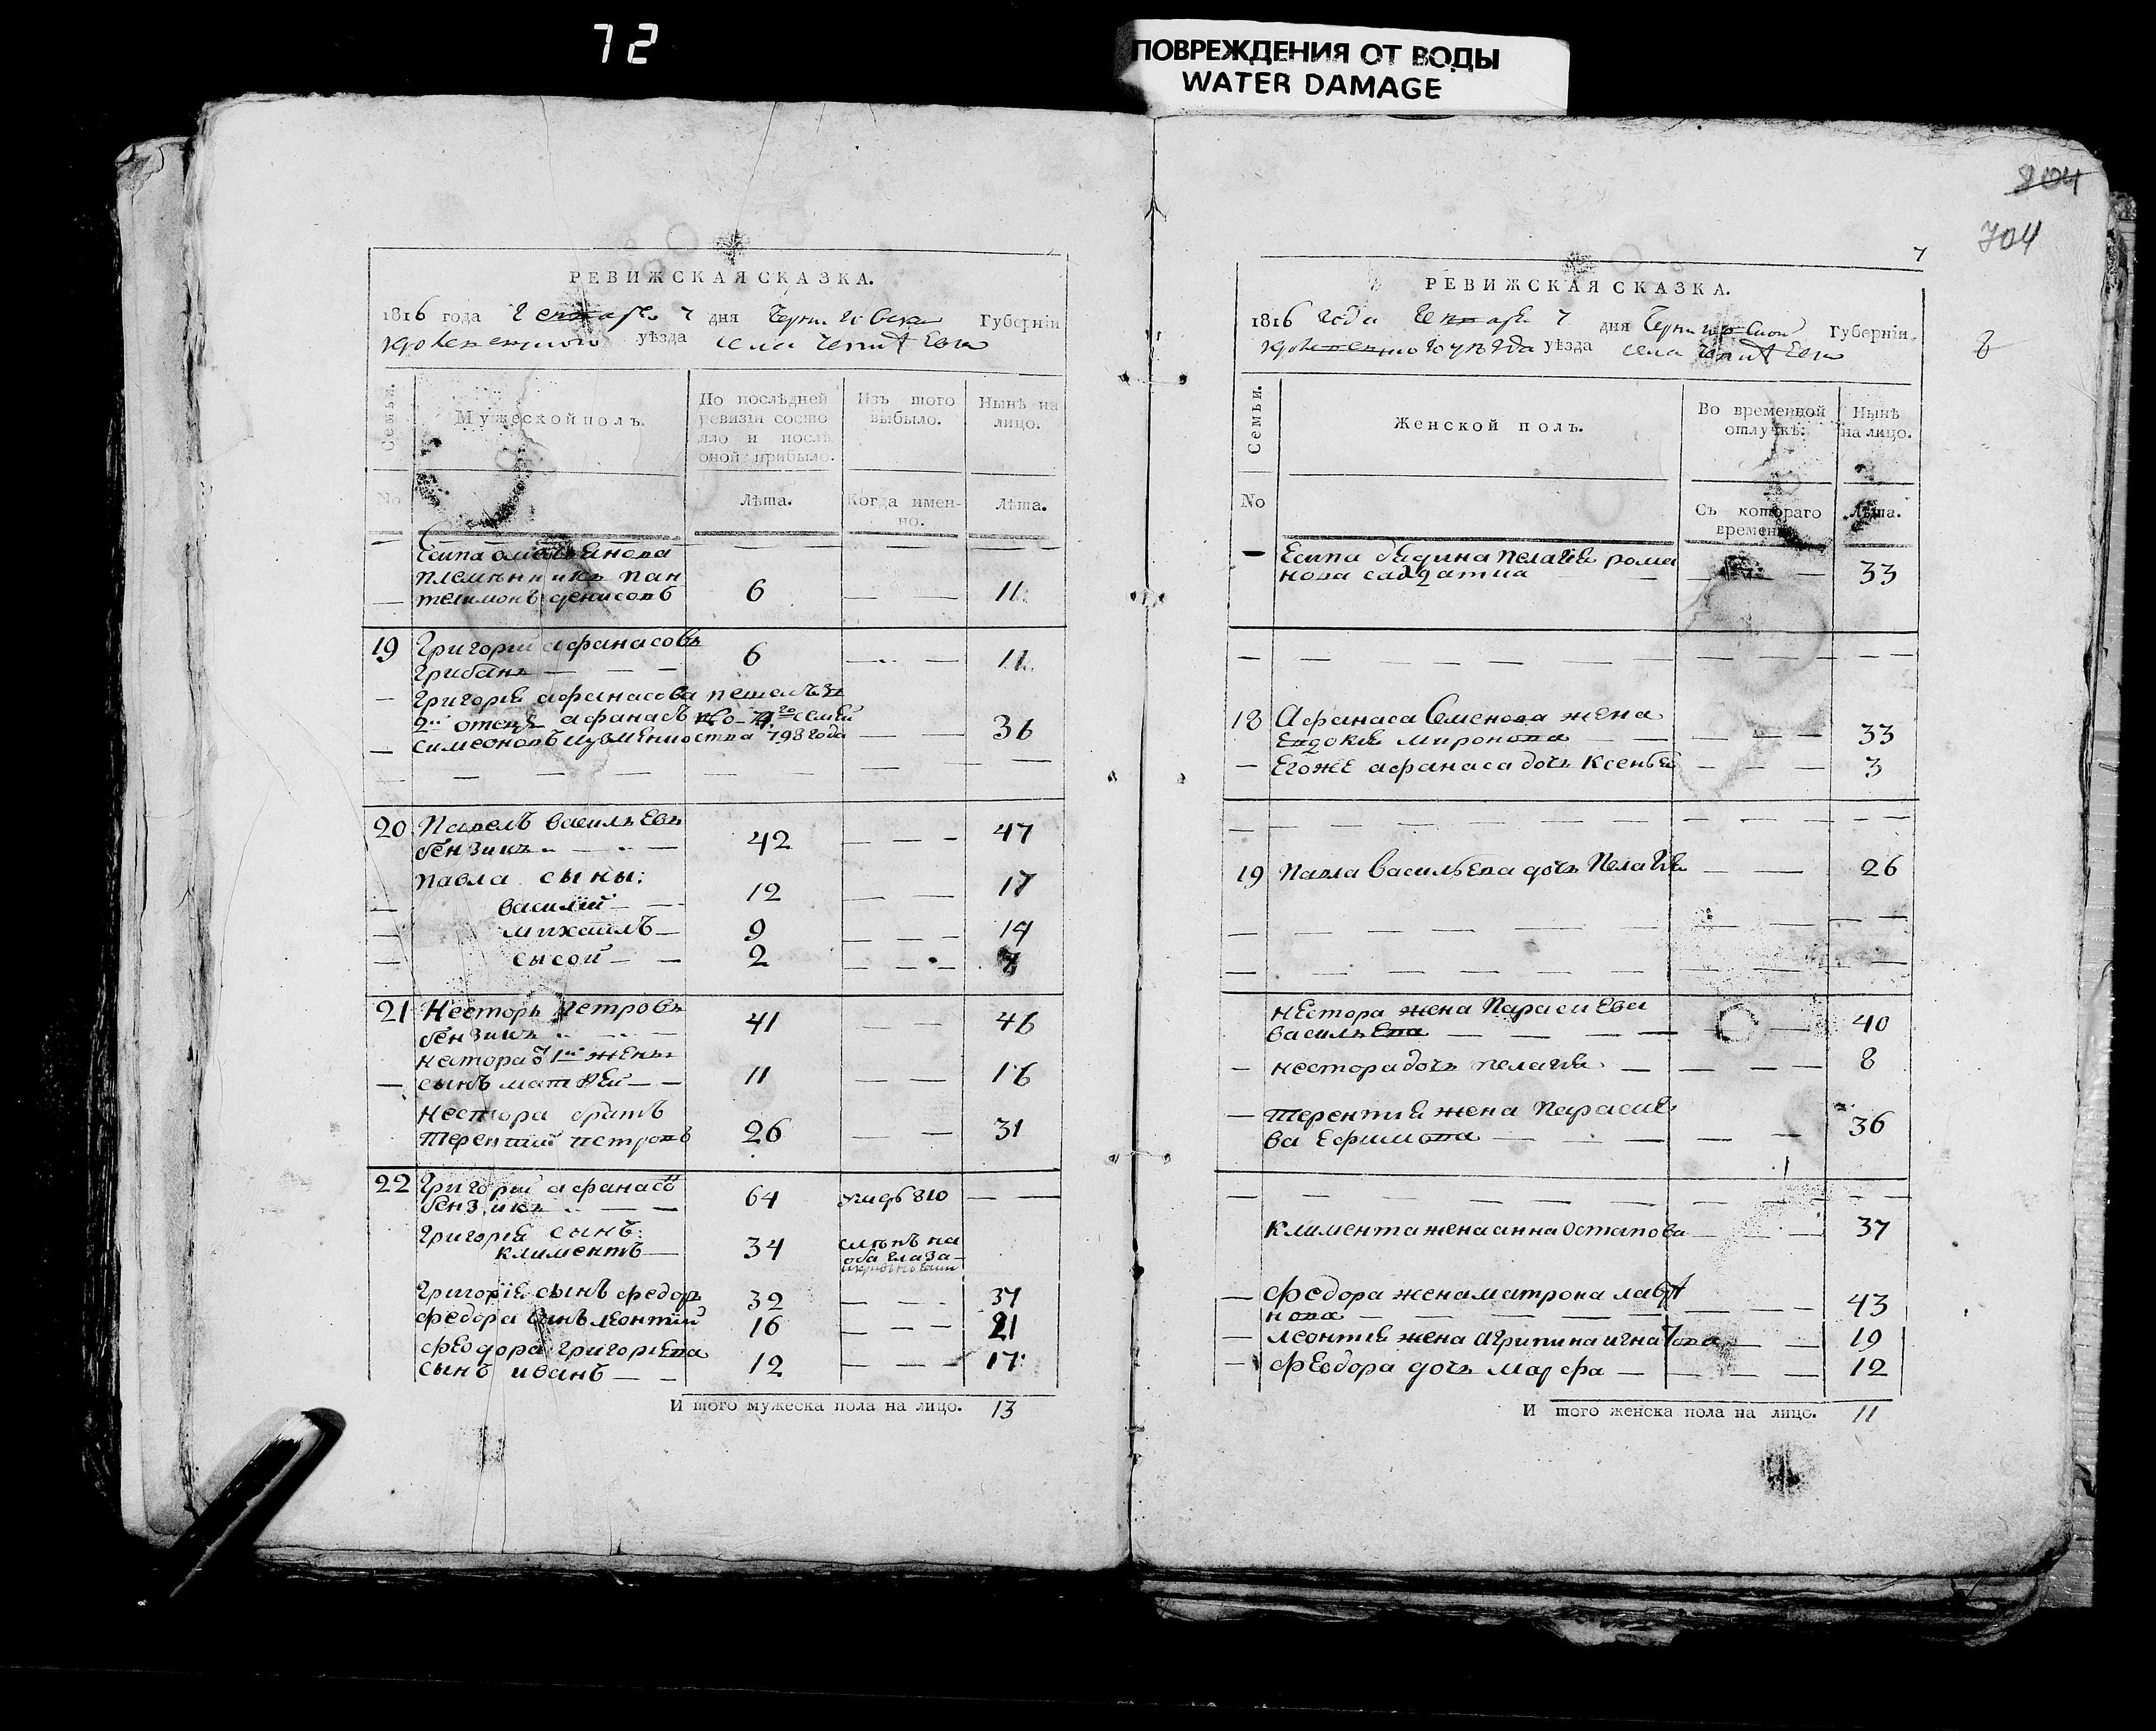 72
ПОВРЕЖДЕНИЯ ОТ ВОДЫ
WATER DAMAGE
804
704
РЕВИЖСКАЯ СКАЗКА.
1816 года 7 дня Губерніи
уѣзда села
Семьи.
Мужеской полъ.
По послѣдней ревизіи состо
яло и послѣ
оной прибыло.
Изъ того
выбыло.
Нынѣ на
лицо.
No
Лѣта.
Когда имен-
но.
Лѣта.
племянникъ пан
телимонъ денисовъ 6 11
19 Григорій афанасовъ
Грибанъ 6 11
Григорія афанасова
2й отецъ афанасъ семьи
симеоновъ 798 года 36
20 Павелъ васильевъ
бензикъ 42 47
Павла сыны:
василій 12 17
михаилъ 9 14
сысой 2 7
21 Несторъ Петровъ
бензикъ 41 46
нестора 1й жены
сынъ матвей 11 16
нестора братъ
терентий петровъ 26 31
22 Григорій афанасъ
бензикъ 64 810
Григорія сынъ:
климентъ 34 слепъ на
оба глаза
Григорія сынъ федоръ 32 37
федора синъ леонтий 16 21
феодора григориева
сынъ иванъ 12 17
И того мужеска пола на лицо. 13
7
РЕВИЖСКАЯ СКАЗКА.
1816 года 7 дня Губерніи
уѣзда села
Семьи.
Женской полъ.
Во временной
отлучкѣ.
Нынѣ
на лицо.
No
Съ котораго
времени.
Лѣта.
Есипа пелагия рома
нова салдатка 33
18 Афанаса Семенова жена
Евдокия миронова 33
Егоже афанаса дочь Ксенья 3
19 Павла васильева дочь Пелагия 26
нестора жена Параскева
васильева 40
нестора дочь пелагия 8
терентия жена Параске
ва Ефимова 36
климента жена анна остапова 37
федора жена матрона
нова 43
леонтия жена агрипина игнатова 19
феодора дочь марфа 12
И того женска пола на лицо. 11